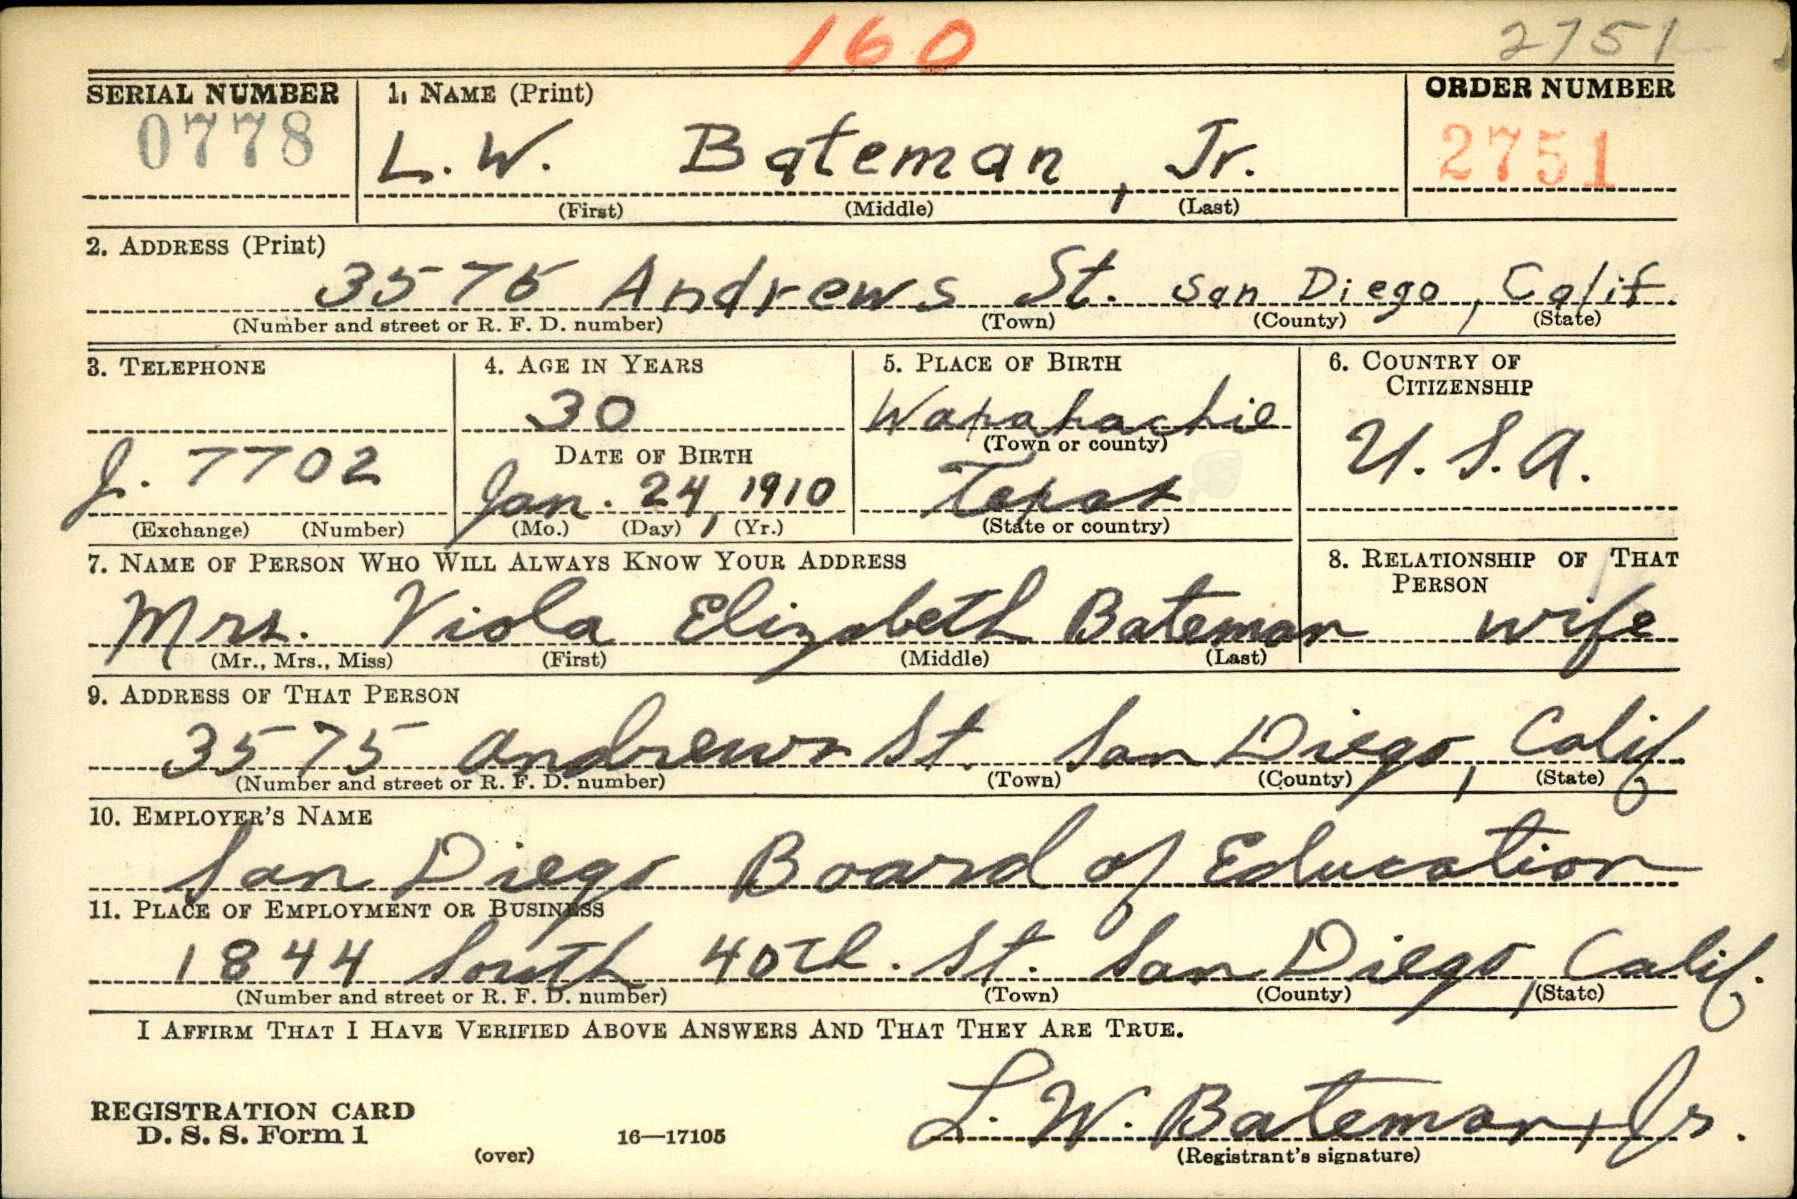 160 2751
SERIAL NUMBER 1. NAME (Print) ORDER NUMBER
0778 L. W. Bateman, Jr. 2751
(First) (Middle) (Last)
2. ADDRESS (Print)
3575 Andrews St. San Diego, Calif.
(Number and street or R. F. D. number) (Town) (County) (State)
3. TELEPHONE 4. AGE IN YEARS 5. PLACE OF BIRTH 6. COUNTRY OF
CITIZENSHIP
30 Waxahachie U.S.A.
(Town or county)
DATE OF BIRTH
J. 7702 Jan. 24, 1910 Texas
(Exchange) (Number) (Mo.) (Day) (Yr.) (State or country)
7. NAME OF PERSON WHO WILL ALWAYS KNOW YOUR ADDRESS 8. RELATIONSHIP OF THAT
PERSON
Mrs. Viola Elizabeth Bateman wife
(Mr., Mrs., Miss) (First) (Middle) (Last)
9. ADDRESS OF THAT PERSON
3575 Andrews St. San Diego, Calif.
(Number and street or R. F. D. number) (Town) (County) (State)
10. EMPLOYER'S NAME
San Diego Board of Education
11. PLACE OF EMPLOYMENT OR BUSINESS
1844 South 40th. St. San Diego, Calif.
(Number and street or R. F. D. number) (Town) (County) (State)
I AFFIRM THAT I HAVE VERIFIED ABOVE ANSWERS AND THAT THEY ARE TRUE.
REGISTRATION CARD
D. S. S. Form 1 L. W. Bateman, Jr.
(over) 16—17105 (Registrant's signature)